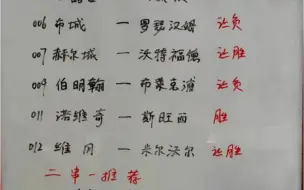 006 布城 — 罗瑟汉姆 让负
007 赫尔城 — 沃特福德 让胜
009 伯明翰 — 布莱克浦 让负
011 诺维奇 — 斯旺西 胜
012 维冈 — 米尔沃尔 让胜
二串一推荐